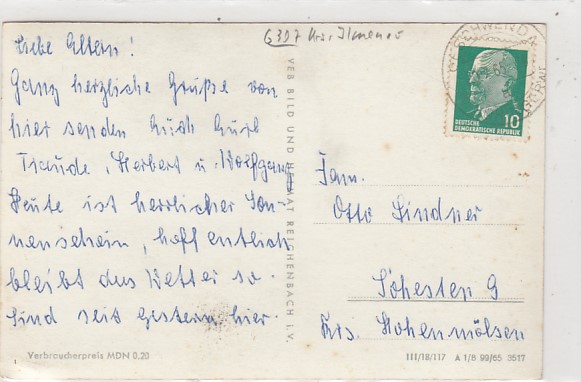 6397 Krs. Ilmenau
Liebe Eltern!
Ganz herzliche Grüße von
hier senden Euch Eure
Traude, Herbert u. Wolfgang
Heute ist herrlicher Son-
nenschein, hoffentlich
bleibt das Wetter so.
Sind seit Gestern hier.
Verbraucherpreis MDN 0,20
VEB BILD UND HEIMAT REICHENBACH I. V.
10
DEUTSCHE
DEMOKRATISCHE REPUBLIK
Fam.
Otto Lindner
Söhesten 9
Krs. Hohenmölsen
III/18/117 A 1/B 99/65 3517